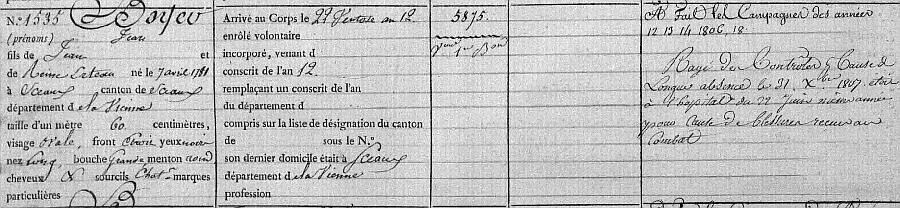 N.° 1535 Boyer
(prénoms) Jean
fils de Jean et
de Reine Coteau né le 7 avril 1781
à Sceaux canton de Sceaux
département d e la Vienne
taille d'un mètre 60 centimètres,
visage ovale, front étroit yeux noir
nez long, bouche grande menton rond
cheveux & sourcils chat. marques
particulières
Arrivé au Corps le 22 Ventose an 12
enrôlé volontaire
incorporé, venant d
conscrit de l'an 12.
remplaçant un conscrit de l'an
du département d
compris sur la liste de désignation du canton
de sous le N.°
son dernier domicile était à Sceaux
département d e la Vienne
profession
5875.
1er Bon
A fait les Campagnes des années
12 13 14 1806, 18
Rayé des Controles p Cause de
Longue absence le 31 Xbre 1807 étoit
à l'hopital du 22 Juin même année
pour Cause de blessures recues au
Combat